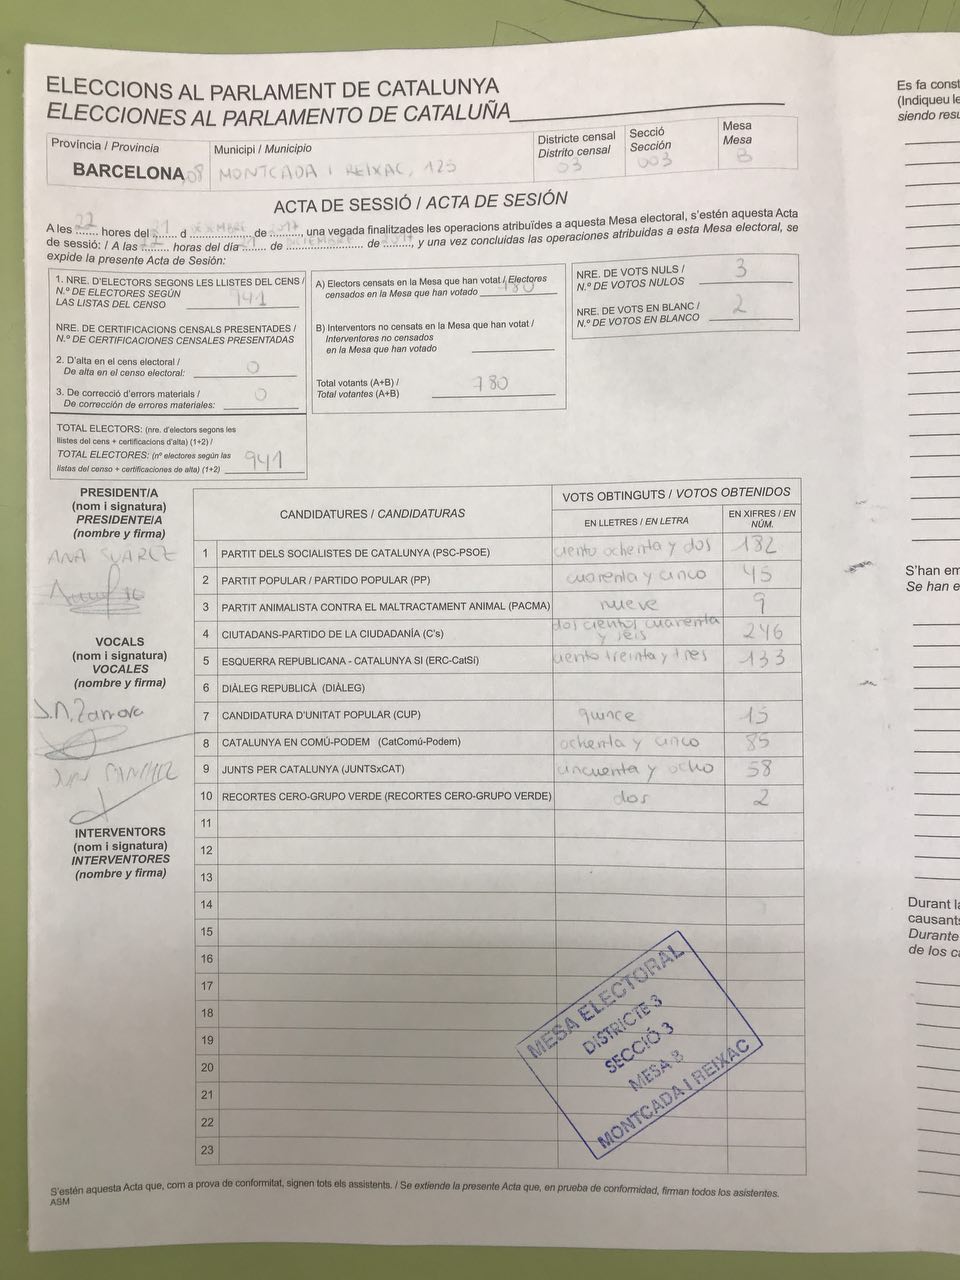 ELECCIONS AL PARLAMENT DE CATALUNYA
ELECCIONES AL PARLAMENTO DE CATALUÑA
Província / Provincia
BARCELONA, 08
Municipi / Municipio
MONTCADA I REIXAC, 125
Districte censal
Distrito censal
03
Secció
Sección
003
Mesa
Mesa
B
ACTA DE SESSIÓ / ACTA DE SESIÓN
A les 22 hores del 21 d de 2017, una vegada finalitzades les operacions atribuïdes a aquesta Mesa electoral, s'estén aquesta Acta
de sessió: / A las 22 horas del día 21 de DICIEMBRE de 2017, y una vez concluidas las operaciones atribuidas a esta Mesa electoral, se
expide la presente Acta de Sesión:
1. NRE. D'ELECTORS SEGONS LES LLISTES DEL CENS /
N.º DE ELECTORES SEGÚN
LAS LISTAS DEL CENSO 941
NRE. DE CERTIFICACIONS CENSALS PRESENTADES /
N.º DE CERTIFICACIONES CENSALES PRESENTADAS
2. D'alta en el cens electoral /
De alta en el censo electoral: 0
3. De correcció d'errors materials /
De corrección de errores materiales: 0
TOTAL ELECTORS: (nre. d'electors segons les
llistes del cens + certificacions d'alta) (1+2) /
TOTAL ELECTORES: (nº electores según las
listas del censo + certificaciones de alta) (1+2) 941
A) Electors censats en la Mesa que han votat / Electores
censados en la Mesa que han votado 780
B) Interventors no censats en la Mesa que han votat /
Interventores no censados
en la Mesa que han votado
Total votants (A+B) /
Total votantes (A+B) 780
NRE. DE VOTS NULS /
N.º DE VOTOS NULOS 3
NRE. DE VOTS EN BLANC /
N.º DE VOTOS EN BLANCO 2
PRESIDENT/A
(nom i signatura)
PRESIDENTE/A
(nombre y firma)
ANA SUAREZ
VOCALS
(nom i signatura)
VOCALES
(nombre y firma)
INTERVENTORS
(nom i signatura)
INTERVENTORES
(nombre y firma)
CANDIDATURES / CANDIDATURAS
VOTS OBTINGUTS / VOTOS OBTENIDOS
EN LLETRES / EN LETRA
EN XIFRES / EN NÚM.
1 PARTIT DELS SOCIALISTES DE CATALUNYA (PSC-PSOE) ciento ochenta y dos 182
2 PARTIT POPULAR / PARTIDO POPULAR (PP) cuarenta y cinco 45
3 PARTIT ANIMALISTA CONTRA EL MALTRACTAMENT ANIMAL (PACMA) nueve 9
4 CIUTADANS-PARTIDO DE LA CIUDADANÍA (C's) dos cientos cuarenta y seis 246
5 ESQUERRA REPUBLICANA - CATALUNYA SI (ERC-CatSí) ciento treinta y tres 133
6 DIÀLEG REPUBLICÀ (DIÀLEG)
7 CANDIDATURA D'UNITAT POPULAR (CUP) quince 15
8 CATALUNYA EN COMÚ-PODEM (CatComú-Podem) ochenta y cinco 85
9 JUNTS PER CATALUNYA (JUNTSxCAT) cincuenta y ocho 58
10 RECORTES CERO-GRUPO VERDE (RECORTES CERO-GRUPO VERDE) dos 2
11
12
13
14
15
16
17
18
19
20
21
22
23
MESA ELECTORAL
DISTRICTE 3
SECCIÓ 3
MESA B
MONTCADA I REIXAC
S'estén aquesta Acta que, com a prova de conformitat, signen tots els assistents. / Se extiende la presente Acta que, en prueba de conformidad, firman todos los asistentes.
ASM
Es fa const
(Indiqueu le
siendo resu
S'han em
Se han e
Durant la
causants
Durante
de los ca